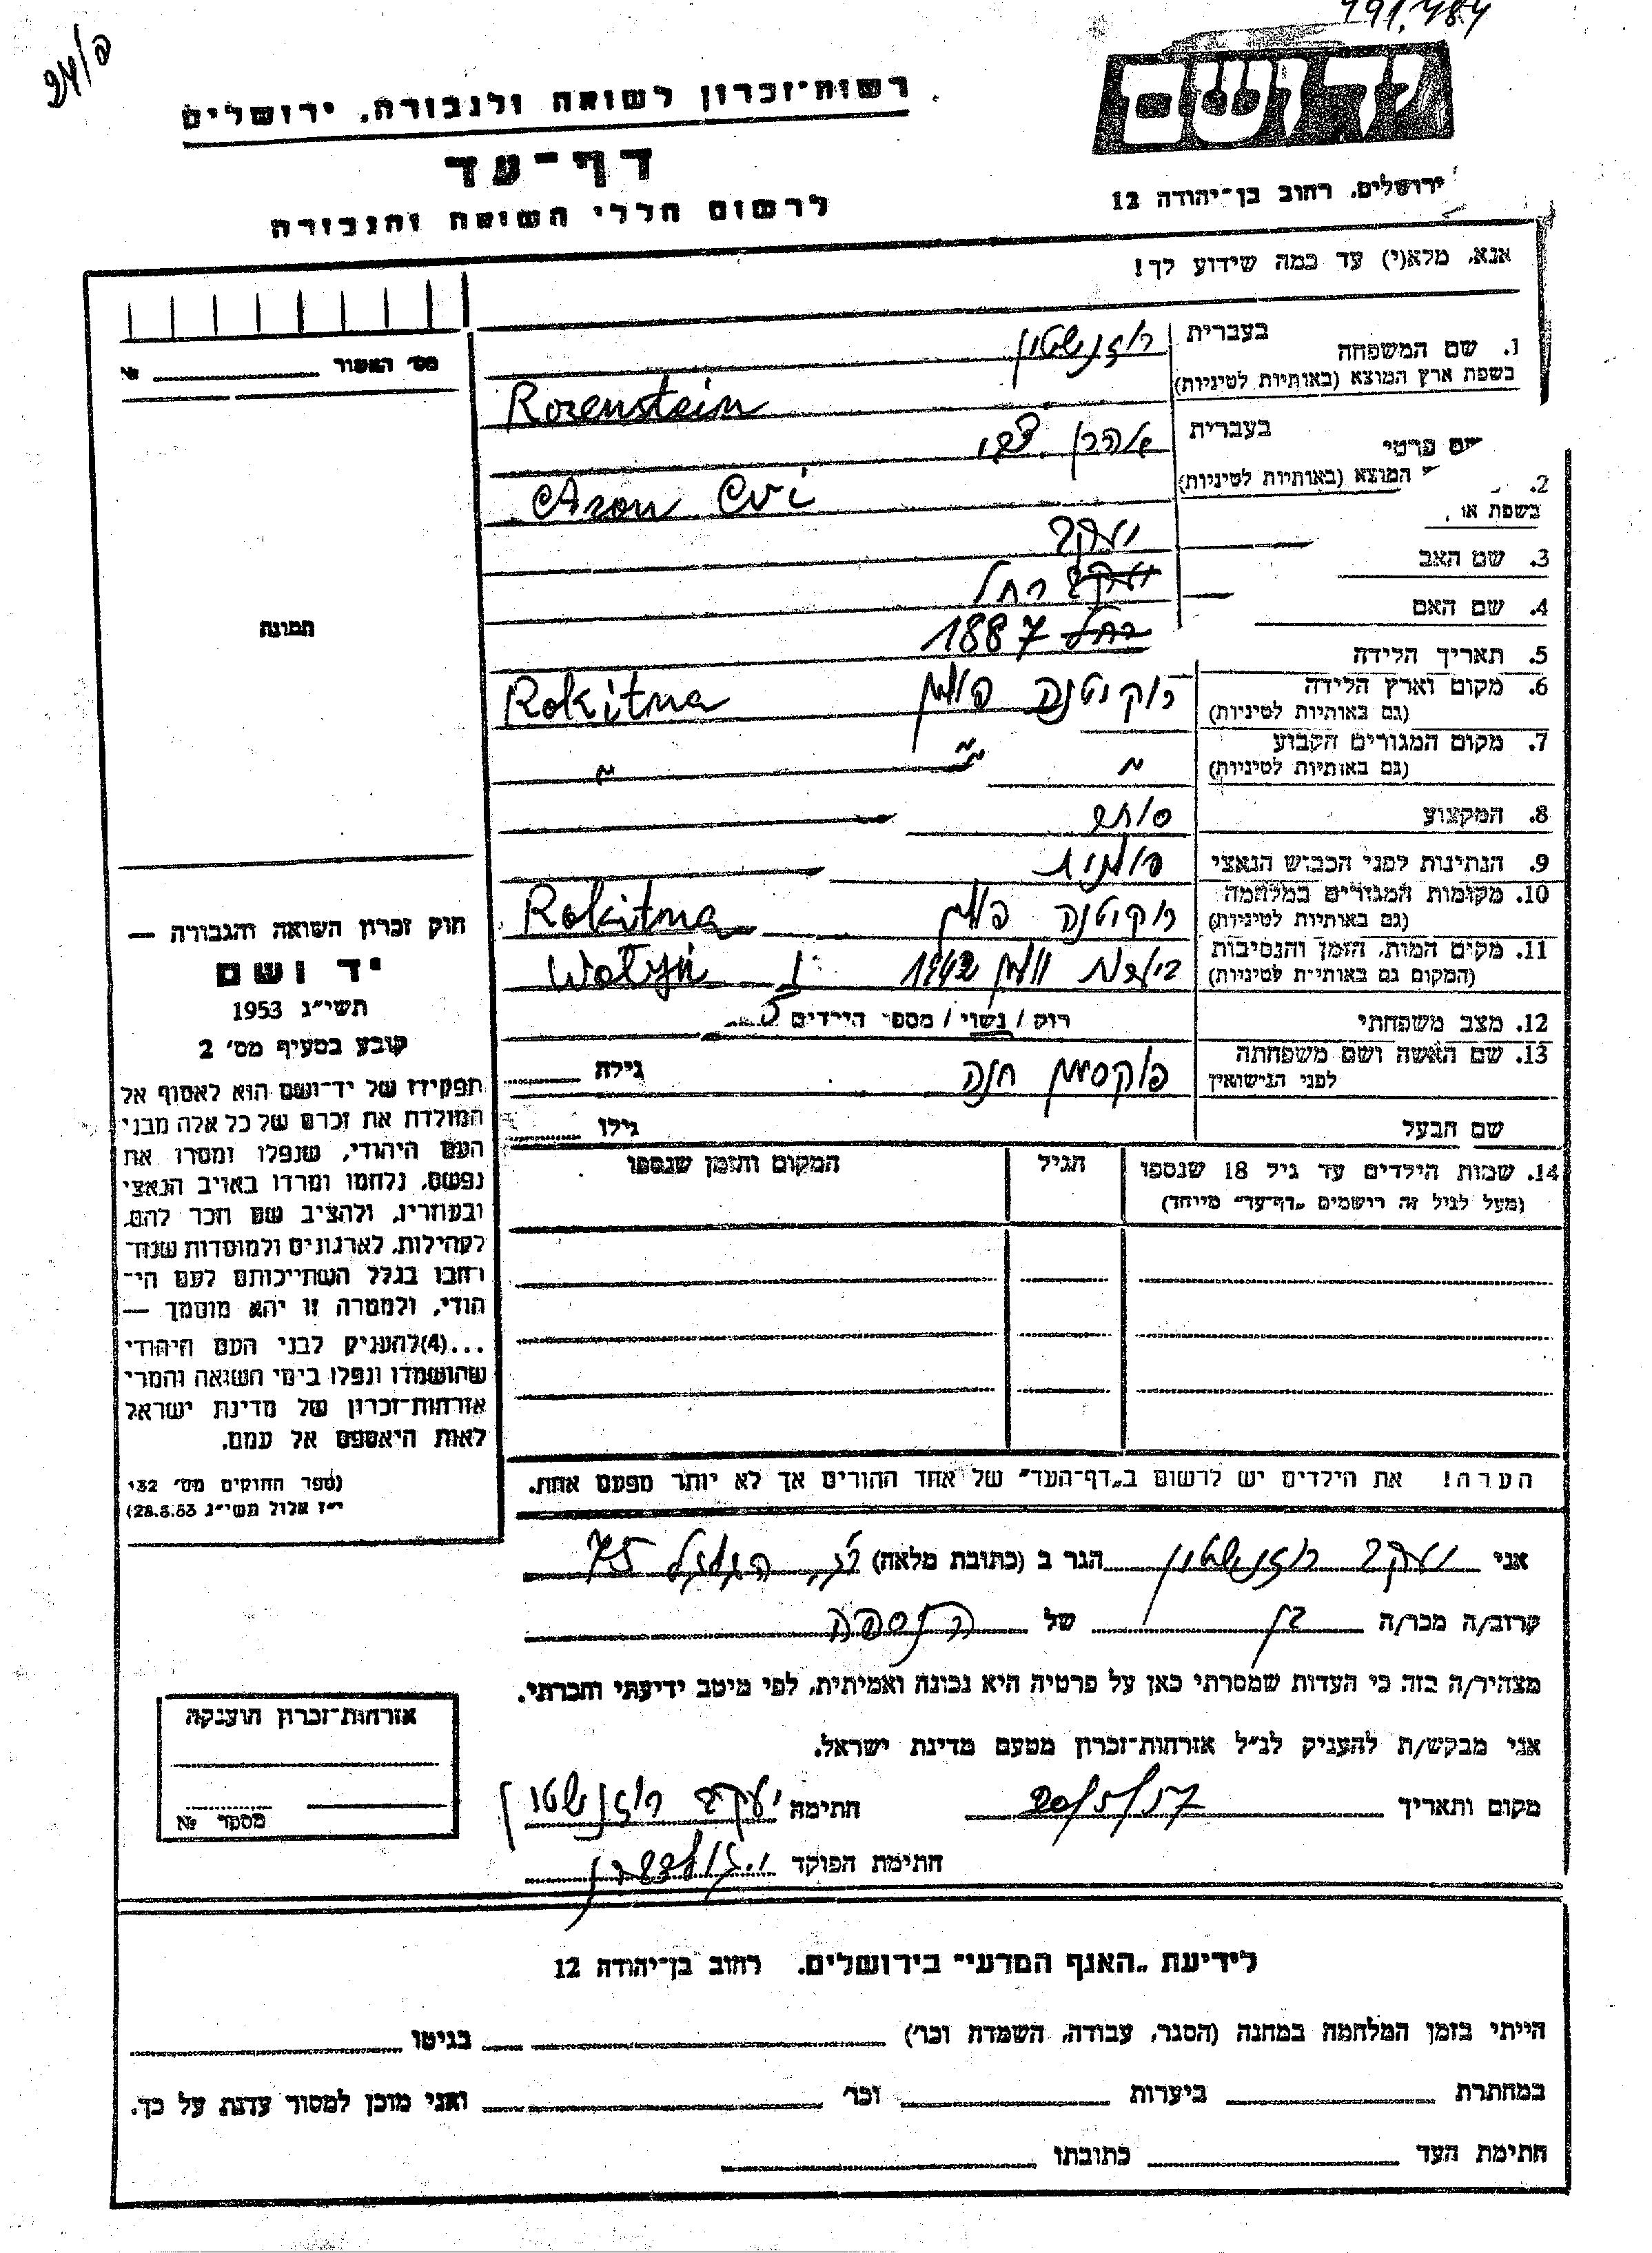 191.484
24/פ
יד ושם
רשות־זכרון לשואה ולגבורה. ירושלים
דף־עד
לרשום חללי השואה והגבורה
ירושלים, רחוב בן־יהודה 12
אנא, מלא(י) עד כמה שידוע לך!
מס׳ האשור №
1. שם המשפחה בעברית רוזנשטין
בשפת ארץ המוצא (באותיות לטיניות) Rozenstein
2. שם פרטי בעברית אהרן צבי
בשפת ארץ המוצא (באותיות לטיניות) Aron Cvi
3. שם האב יעקב
4. שם האם יעקב רחל
5. תאריך הלידה רחל 1887
6. מקום וארץ הלידה רוקיטנה פולין Rokitna
(גם באותיות לטיניות)
7. מקום המגורים הקבוע " " "
(גם באותיות לטיניות)
8. המקצוע סוחר
9. הנתינות לפני הכבוש הנאצי פולנית
10. מקומות המגורים במלחמה רוקיטנה פולין Rokitna
(גם באותיות לטיניות)
11. מקום המות, הזמן והנסיבות ביערות ווהלין 1942 Wołyń
(המקום גם באותיות לטיניות)
12. מצב משפחתי רוק / נשוי / מספר הילדים 5
13. שם האשה ושם משפחתה פוקסמן חנה גילה
לפני הנישואין
שם הבעל גילו
14. שמות הילדים עד גיל 18 שנספו הגיל המקום והזמן שנספו
(מעל לגיל זה רושמים „דף־עד״ מייחד)
הערה! את הילדים יש לרשום ב„דף־העד״ של אחד ההורים אך לא יותר מפעם אחת.
תמונה
חוק זכרון השואה והגבורה —
יד ושם
תשי״ג 1953
קובע בסעיף מס׳ 2
תפקידו של יד־ושם הוא לאסוף אל
המולדת את זכרם של כל אלה מבני
העם היהודי, שנפלו ומסרו את
נפשם, נלחמו ומרדו באויב הנאצי
ובעוזריו, ולהציב שם וזכר להם,
לקהילות, לארגונים ולמוסדות שנח־
רבו בגלל השתייכותם לעם הי־
הודי, ולמטרה זו יהא מוסמך —
...(4)להעניק לבני העם היהודי
שהושמדו ונפלו בימי השואה והמרי
אזרחות־זכרון של מדינת ישראל
לאות היאספם אל עמם.
(ספר החוקים מס׳ 132
י״ז אלול תשי״ג 28.8.53)
אני יעקב רוזנשטין הגר ב (כתובת מלאה) 75
קרוב/ה מכר/ה בן של הנספה
מצהיר/ה בזה כי העדות שמסרתי כאן על פרטיה היא נכונה ואמיתית, לפי מיטב ידיעתי והכרתי.
אני מבקש/ת להעניק לנ״ל אזרחות־זכרון מטעם מדינת ישראל.
מקום ותאריך 20/5/57 חתימה יעקב רוזנשטין
חתימת הפוקד
אזרחות־זכרון הוענקה
מספר №
לידיעת „האגף המדעי״ בירושלים. רחוב בן־יהודה 12
הייתי בזמן המלחמה במחנה (הסגר, עבודה, השמדה וכר׳) בגיטו
במחתרת ביערות וכר׳ ואני מוכן למסור עדות על כך.
חתימת העד כתובתו